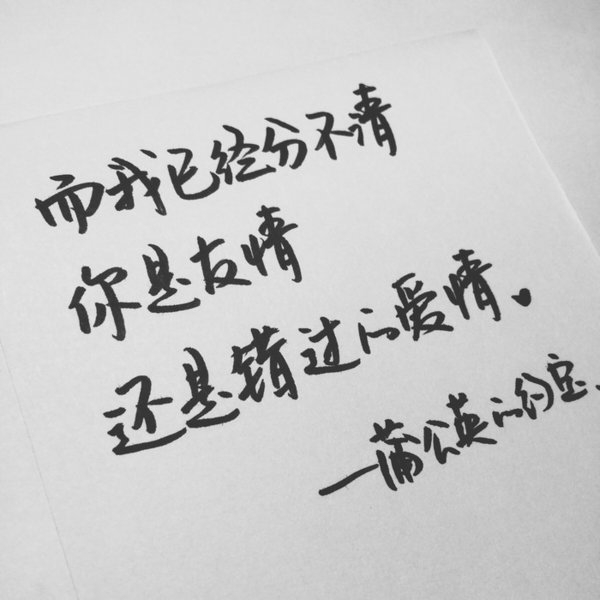 而我已经分不清
你是友情
还是错过的爱情。
—蒲公英的约定。